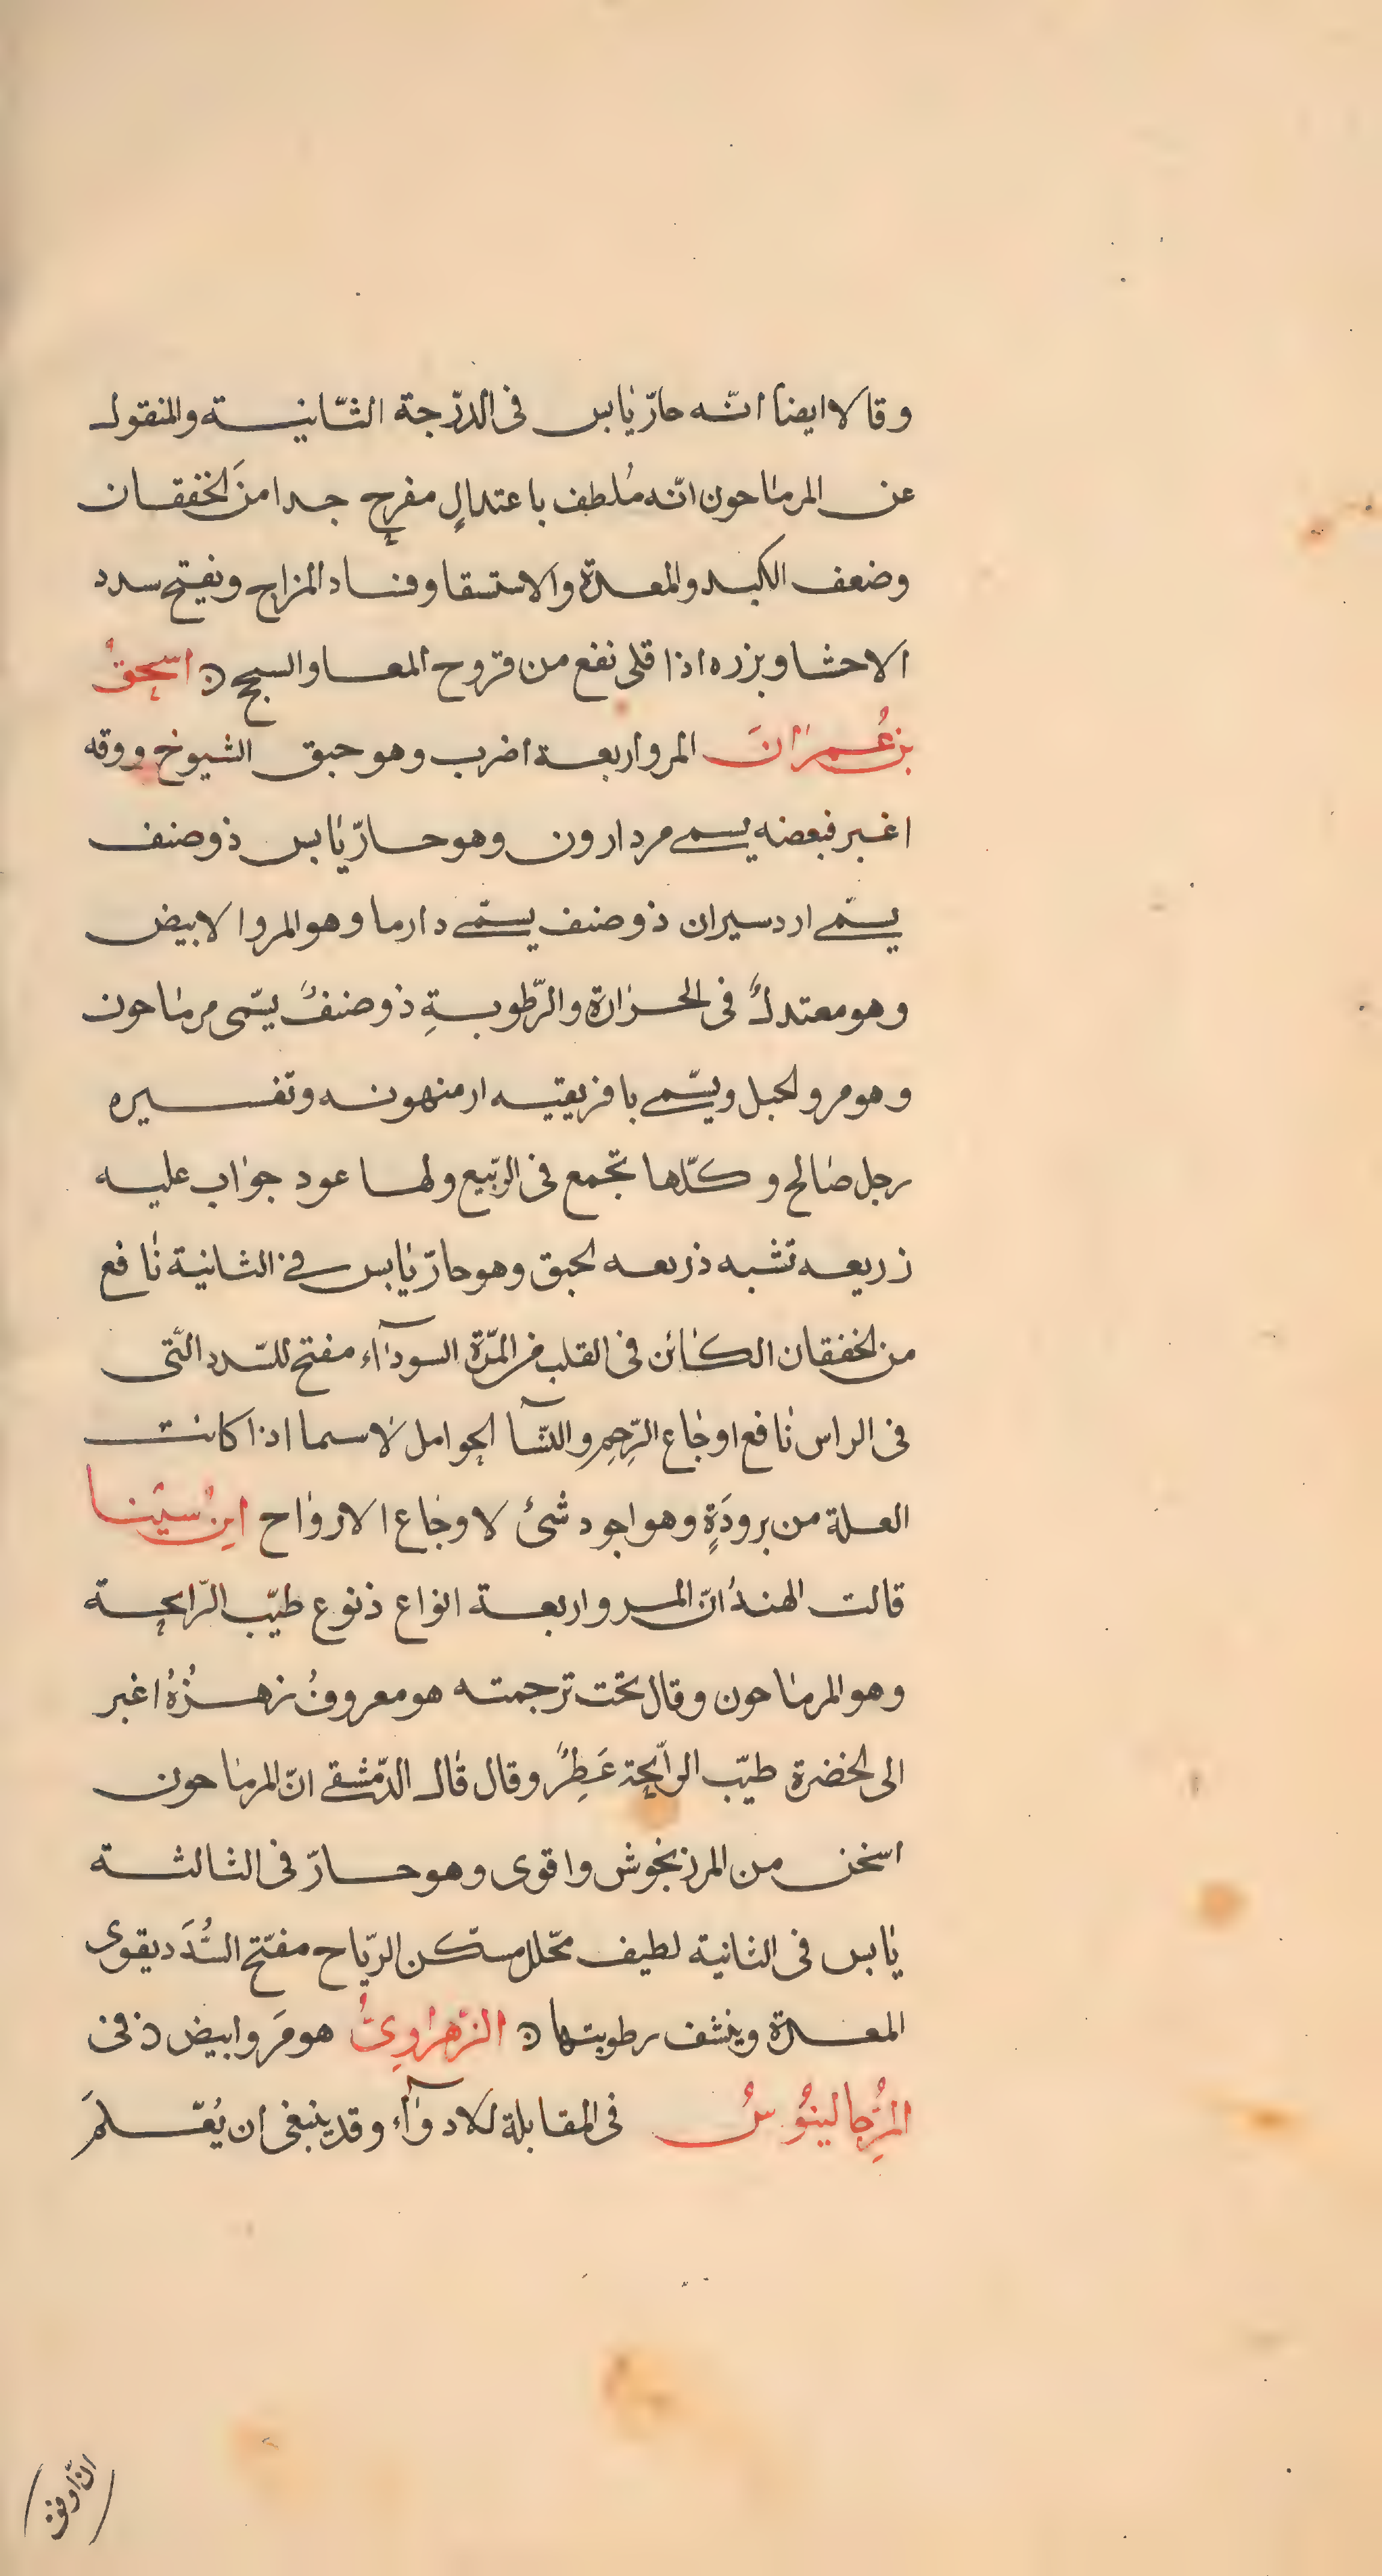 وقالا ايضا انّه حارّ يابس فى الدرّجة الثّانية والمنقول
عن المرماحون انّه مُلطف باعتدالٍ مفرح جدا منَ الخفقان
وضعف الكبد والمعدة والاستسقا وفساد المزاج ويفتح سدد
الاحشا وبزره اذا قلى نفع من قروح المعا والسحج ۞ اسحٰقُ
بن عُمرَانَ المرو اربعة اضرب وهو حبق الشيوخ وورقه
اغبر فبعضه يسمى مردارون وهو حارّ يابس ذ وصنف
يسمّى اردسيران ذ وصنف يسمّى دارما وهو المرو الابيض
وهو معتدلٌ فى الحرارة والرّطوبةِ ذ وصنفٌ يسّمى مرماحون
وهو مرو لجبل ويسّمى بافريقيه ارمنهونه وتفسيره
رجل صالح و كلّها تجمع فى الرّبيع ولها عود جوّاب عليه
زريعه تشبه ذريعه لحبق وهو حارّ يابس فى الثانية نافع
من لخفقان الكائن فى القلب من المرّة السودآء مفتح للسّدد الّتى
فى الراس نافع اوجاع الرّحِمِ والنسّآ الحوامل لاسيما اذا كانت
العلة من برودَةٍ وهو اجود شئ لاوجاع الارواح ابنِ سيْنا
قالت الهندُ انّ المرو اربعة انواع ذ نوع طيّب الرّايحة
وهو المرماحون وقال تحت ترجمته هو معروفٌ زهرُهُ اغبر
الى لخضرة طيّب الرآيحة عَطِرٌ وقال قال الدّمشقى انّ المرماحون
اسخن من المرزنجوش واقوى وهو حارّ فى الثالثة
يابس فى الثانية لطيف محّلل مسّكن الريّاح مفتّح السُّدَد يقوى
المعدة وينشف رطوبتها ۞ الزّهراوِىُّ هو مَرو ابيض ذ فى
المُرِّ جالينُوسُ فى المقابلة للادوآء وقد ينبغى ان يُعّلمَ
انّ اوفق